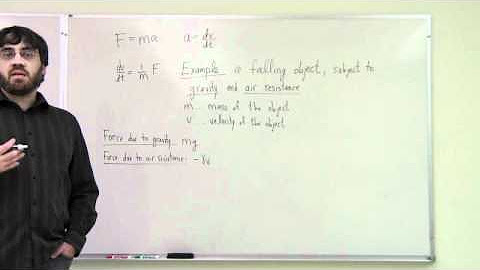 F = ma a = dv/dt
dv/dt = 1/m F Example a falling object, subject to
gravity and air resistance
m ... mass of the object
v ... velocity of the object
Force due to gravity ... mg
Force due to air resistance: - γv